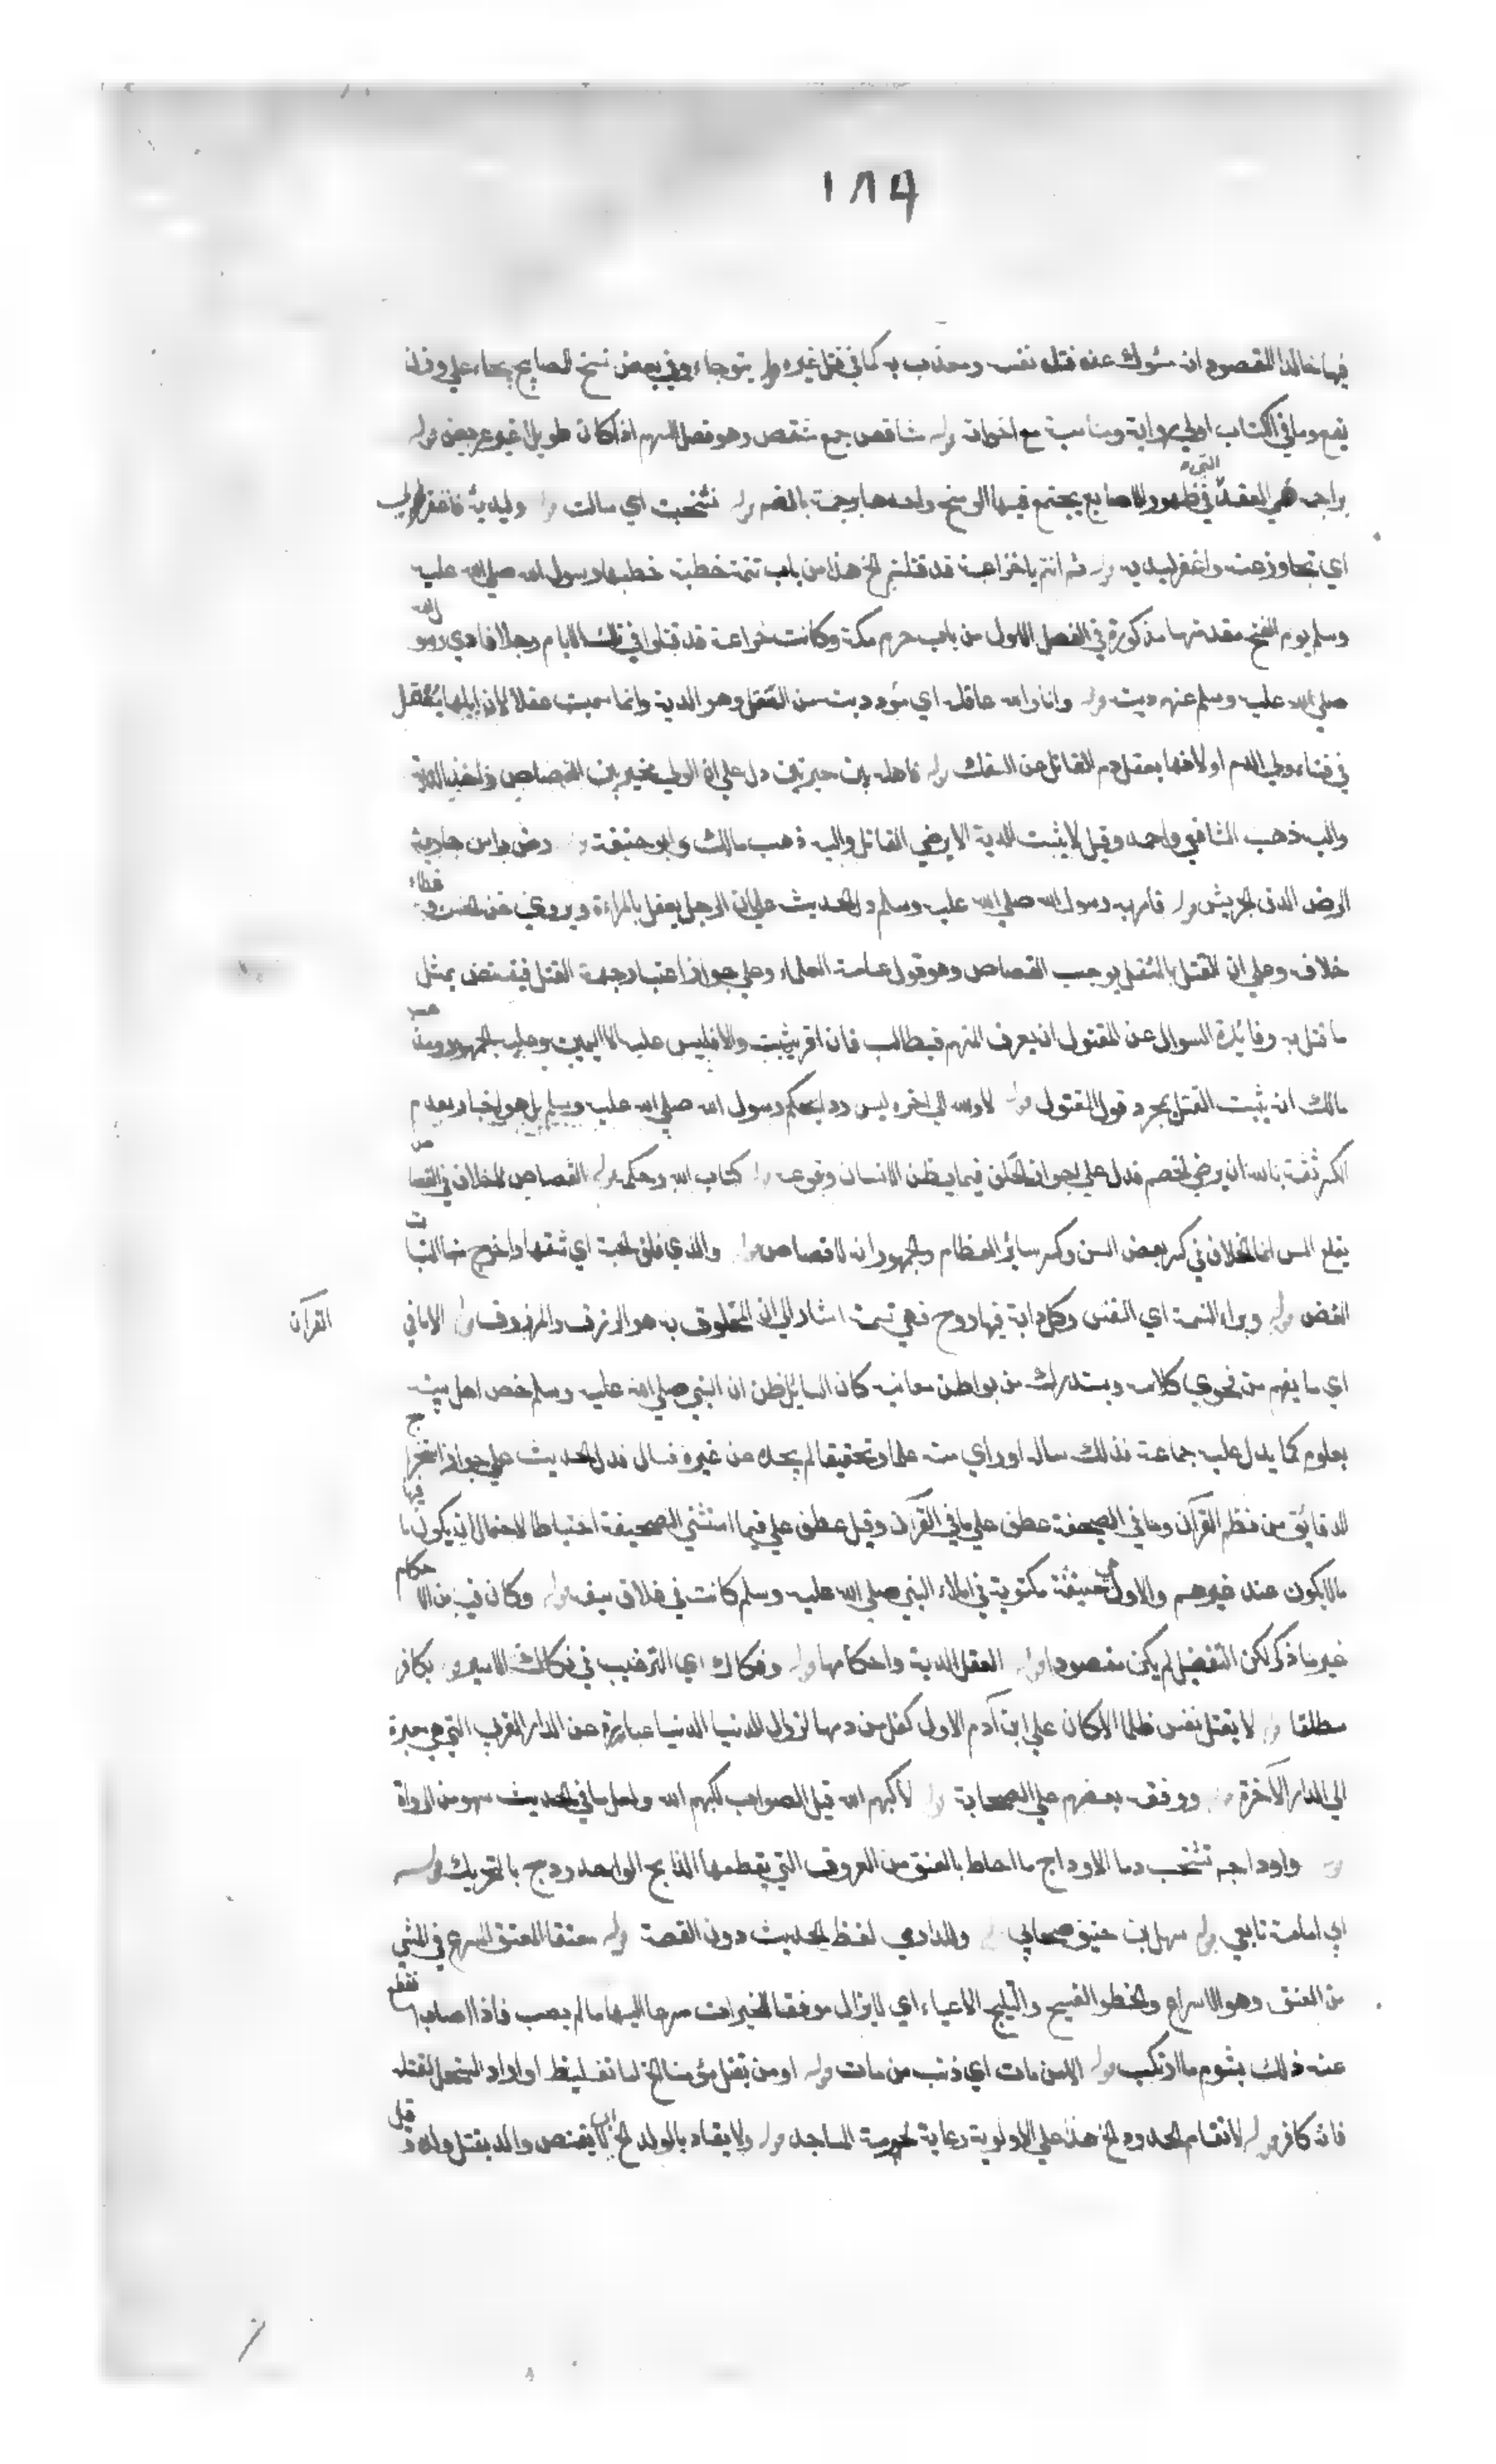 ١٨٩
فيها خالدا المقصود ان مسؤل عنه قتله نفسه ومعذب به كما في قتل غيره قوله يتوجاء وفي بعض نسخ المصابيح يجاء على وزن
يضع وما في الكتاب اولى رواية ومناسبة مع اخواته قوله مشاقص جمع مشقص وهو فصل السهم اذا كان طويلا غير عريض قوله
براجمه هي العقد التي في ظهور الاصابع يجتمع فيها الوسخ واحدها برجمة بالضم قوله فشخبت اي سالت قوله وليديه فاغفر
اي تجاوز عنه واغفر ليديه قوله ثم انتم يا خزاعة قد قتلتم الخ هذا من باب تتمة خطبة خطبها رسول الله صلى الله عليه
وسلم يوم الفتح مقدمتها مذكورة في الفصل الاول من باب حرم مكة وكانت خزاعة قد قتلوا في تلك الايام رجلا فادى رسول الله
صلى الله عليه وسلم عنهم ديته قوله وانا والله عاقله اي مؤد ديته من العقل وهو الدية وانما سميت عقلا لان ابلها يعقل
في فناء ولي الدم او لانها يعقل دم القاتل عن السفك قوله فاهله بين خيرتين دل على ان الولي مخير بين القصاص واخذ الدية
واليه ذهب الشافعي واحمد وقيل لا يثبت الدية الا برضى القاتل واليه ذهب مالك وابو حنيفة قوله رض راس جارية
الرض الدق الجريش قوله فامر به رسول الله صلى الله عليه وسلم دل الحديث على ان الرجل يقتل بالمراءة ويروى عن الحسن وعطاء
خلافه وعلى ان القتل بالمثقل يوجب القصاص وهو قول عامة العلماء وعلى جواز اعتبار جهة القتل فيقتص بمثل
ما قتل به وفائدة السوال عن المقتول ان يعرف المتهم فيطالب فان اقر يثبت والا فليس عليه الا اليمين وعليه الجمهور ومذهب
مالك ان يثبت القتل بمجرد قول المقتول قوله لا والله الى اخره ليس رد الحكم رسول الله صلى الله عليه وسلم بل هو اخبار بعدم
الكسر ثقة بالله ان يرضي الخصم فدل على جواز الحلف فيما يظن الانسان وقوعه قوله كتاب الله وحكمه قوله القصاص لا خلاف في القصاص
بقلع السن انما الخلاف في كسر بعض السن وكسر سائر العظام والجمهور انه لا قصاص قوله والذي فلق الحبة اي شقها واخرج منها النبات
الغض قوله وبراء النسمة اي النفس وكل دابة فيها روح فهي نسمة اشار الى ان المحلوف به هو الرازق والمرزوق قوله الا ما في القرآن
اي ما يفهم من فحوى كلامه ويستدرك من بواطن معانيه كان السائل ظن ان النبي صلى الله عليه وسلم خص اهل بيته
بعلوم كما يدل عليه جماعة فذلك سال او راى منه علما وتحقيقا لم يجده عن غيره فسال فدل الحديث على جواز استخراج
الدقائق من نظم القرآن وما في الصحيفة عطف على ما في القرآن وقيل عطف على فيما استثنى الصحيفة احتياطا لاحتمال ان يكون فيها ما
مالا يكون عند غيرهم والاول مكتوبة في املاء النبي صلى الله عليه وسلم كانت في غلاف سيفه قوله وكان فيه من الاحكام
غير ما ذكر لكن التفصيل لم يكن مقصودا قوله العقل الدية واحكامها قوله وفكاك اي الترغيب في فكاك الاسير قوله بكافر
مطلقا قوله لا يقتل نفس ظلما الا كان على ابن آدم الاول كفل من دمها لزوال الدنيا الدنيا عبارة عن الدار القربى التي هي معبرة
الى الدار الآخرة قوله ووقفه بعضهم على الصحابة قوله لاكبهم الله قيل الصواب لكبهم الله ولعل ما في الحديث سهو من الرواة
قوله واوداجه تشخب دما الاوداج ما احاط بالعنق من العروق التي يقطعها الذابح الواحد ودج بالتحريك قوله
ابي امامة تابعي قوله سهل بن حنيف صحابي قوله والدارمي لفظ الحديث دون القصة قوله معنقا المعنق المسرع في المشي
من العنق وهو الاسراع والخطو الفسيح والتبليج الاعياء اي لا يزال موفقا للخيرات مسرعا اليها ما لم يصب فاذا اصاب انقطع
عنه ذلك بشوم ما ارتكب قوله الا من مات اي ذنب من مات قوله او من يقتل مؤمنا الخ انما تغليظ او اراد المستحل لقتله
فانه كافر قوله لا تقام الحدود الخ هذا على الاولوية رعاية لحرمة المساجد قوله ولا يقاد بالولد الخ اي لا يقتص والد بقتل ولده قيل